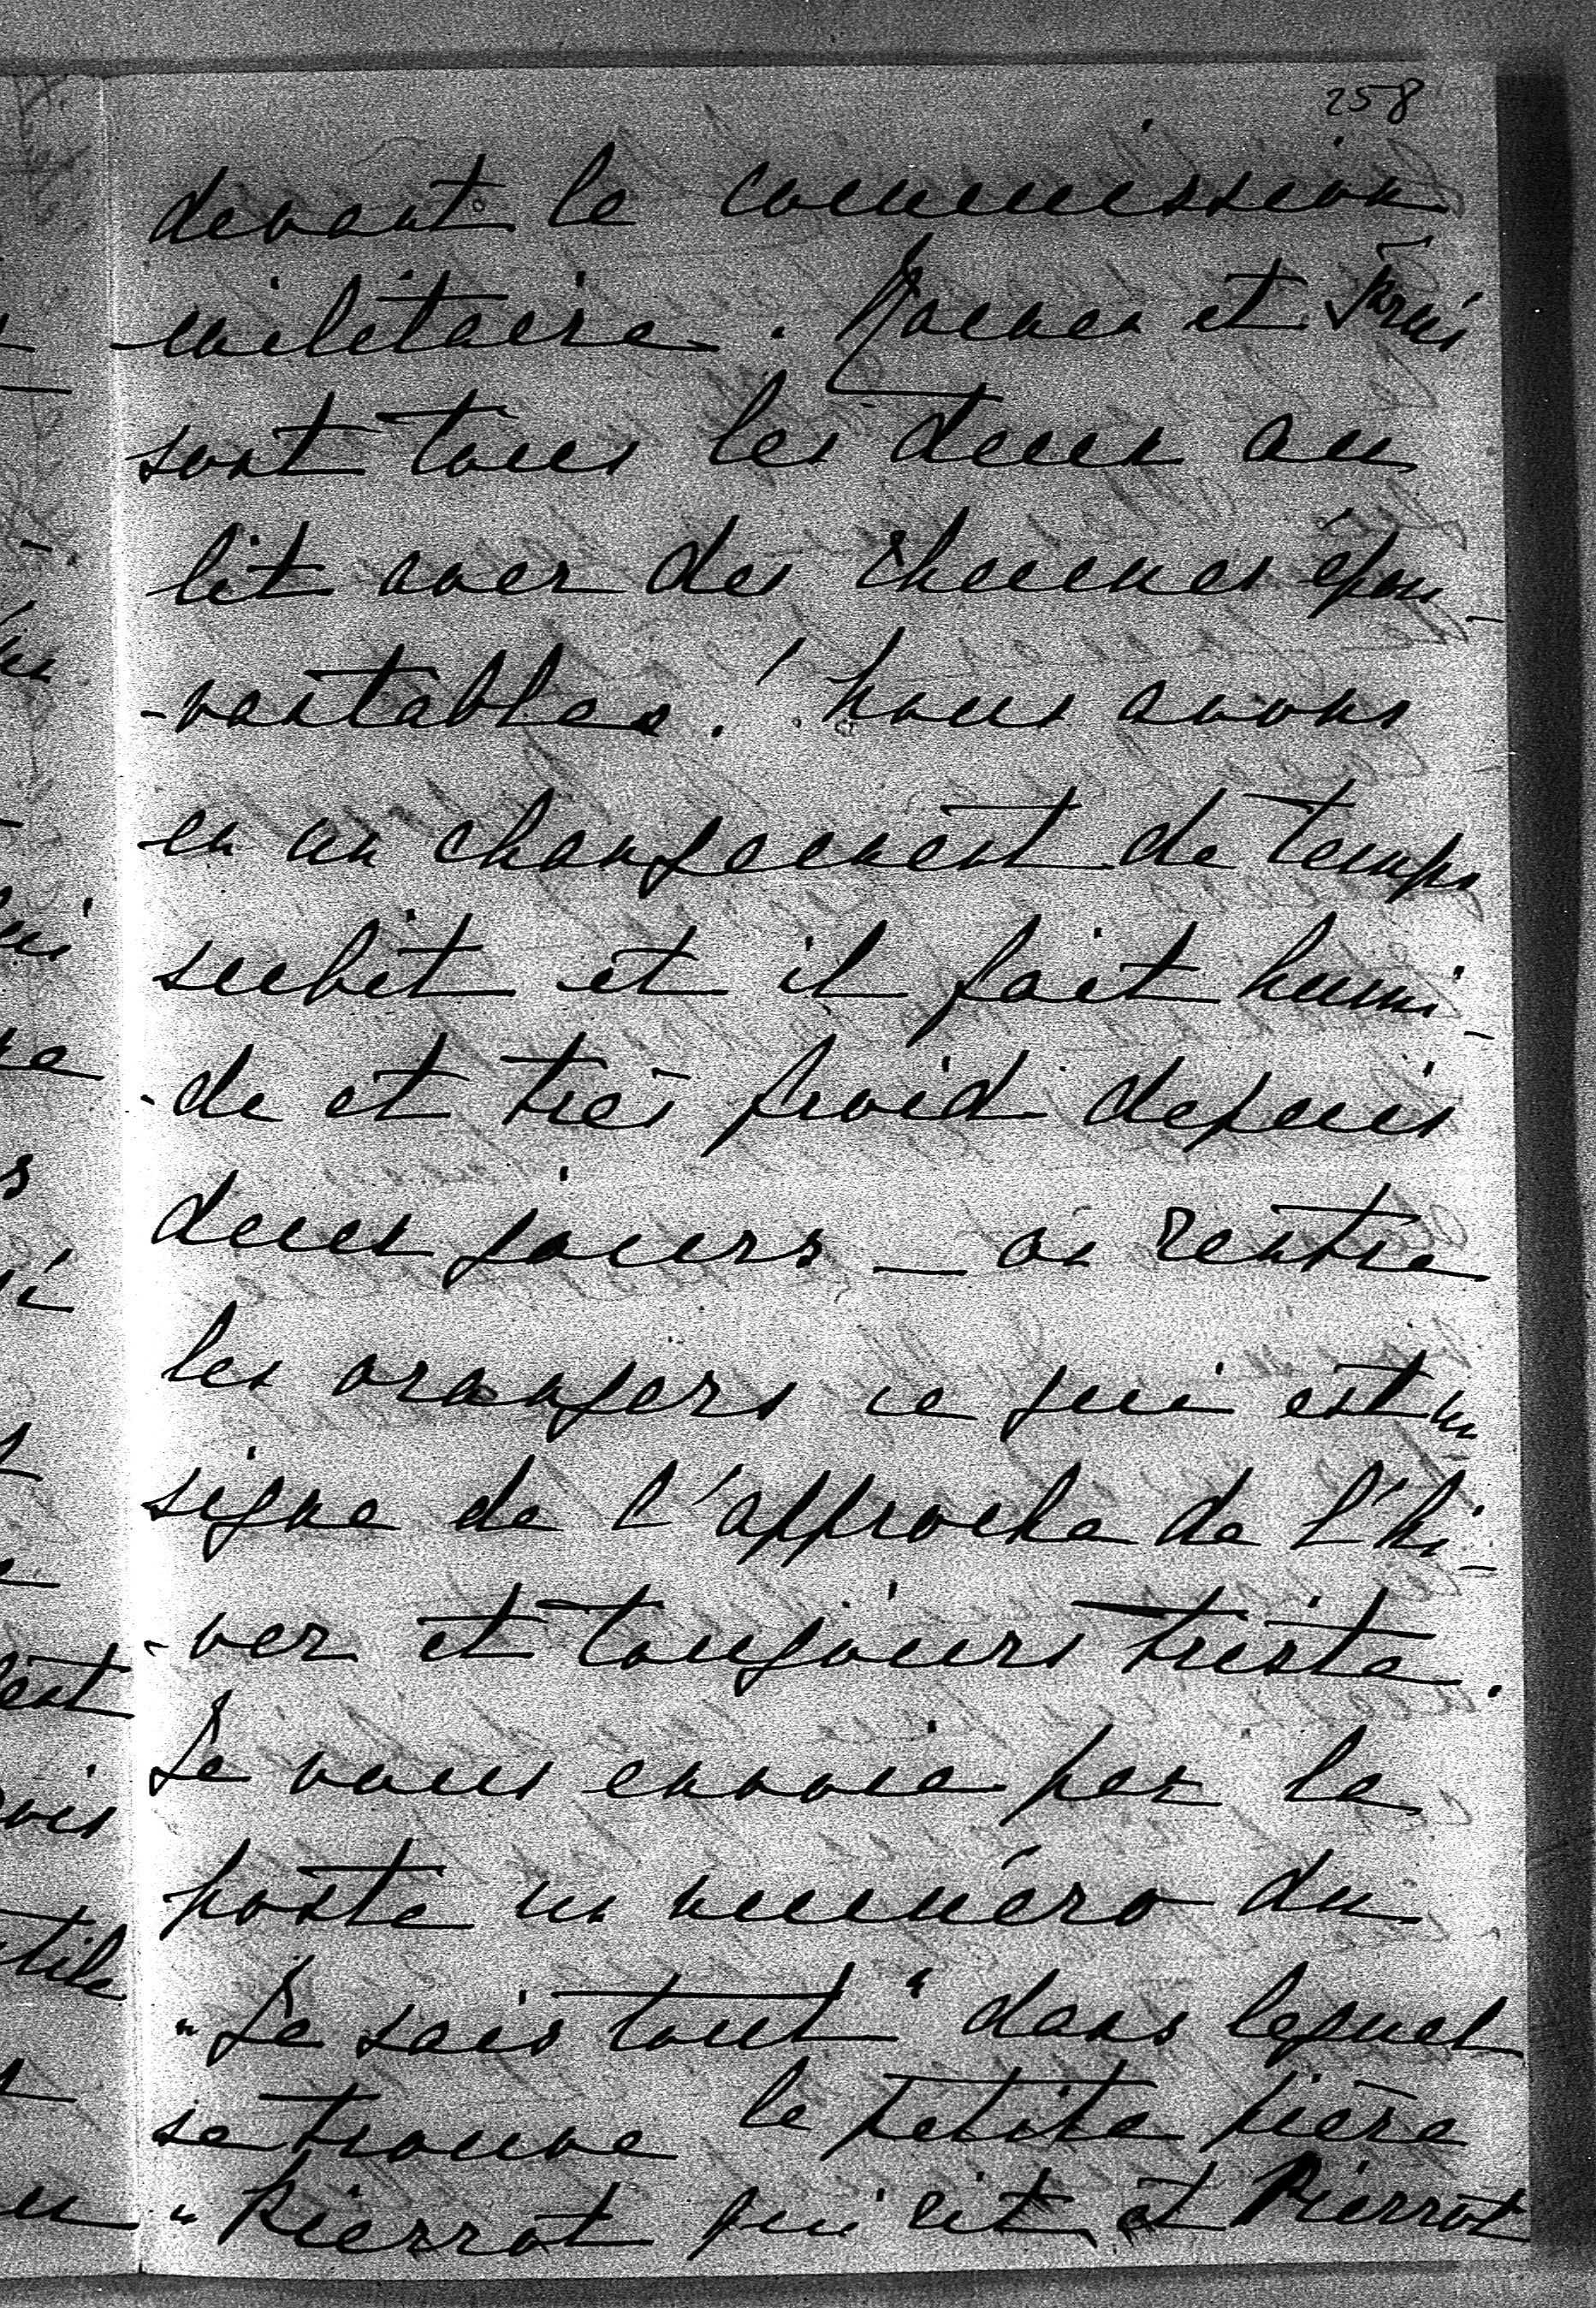 258
devant la commission
militaire. et
sont tous les deux au
lit avec des rhumes épou-
-vantables! nous avons
eu un changement de temps
subit et il fait humi-
-de et très froid depuis
deux jours _ on rentre
les orangers ce qui est un
signe de l'approche de l'hi-
-ver et toujours triste.
Je vous envoie par la
poste un numéro du
"Je sais tout" dans lequel
se trouve la petite pièce
"Pierrot qui rit et Pierrot